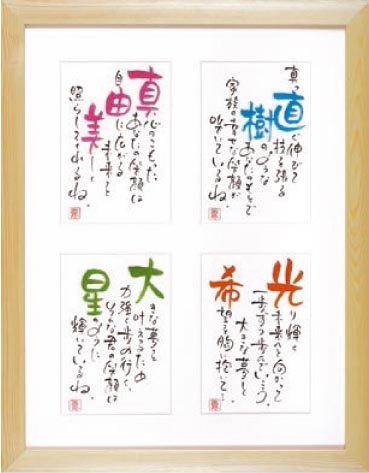 真っ直ぐ伸びて
枝を張る
樹のような
あなたのもとで
家族の幸せな笑顔が
咲いているね。
真心のこもった
あなたの笑顔は
自由に広がる
未来を
美しく
照らしてくれるね。
光り輝く
未来へと向かって
一歩ずつ歩んでいこう。
大きな夢と
希望を胸に抱いて…
大きな夢を
叶えるため
力強く歩み行く
そんな君の笑顔は
星のように
輝いているね。